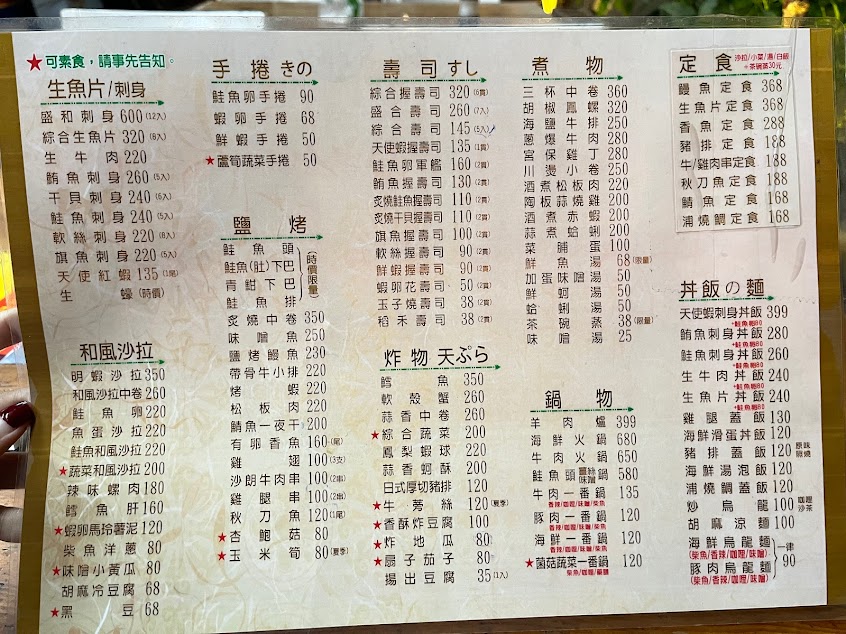 ★可素食，請事先告知。
生魚片/刺身
盛和刺身 600(12入)
綜合生魚片 320(8入)
生牛肉 220
鮪魚刺身 260(5入)
干貝刺身 240(6入)
鮭魚刺身 240(5入)
軟絲刺身 220(8入)
旗魚刺身 220(5入)
天使紅蝦 135(1尾)
生蠔(時價)
和風沙拉
明蝦沙拉 350
和風沙拉中卷 260
鮭魚卵 220
魚蛋沙拉 220
鮭魚和風沙拉 220
★蔬菜和風沙拉 200
辣味螺肉 180
鱈魚肝 160
★蝦卵馬玲薯泥 120
柴魚洋蔥 80
★味噌小黃瓜 80
胡麻冷豆腐 68
★黑豆 68
手捲きの
鮭魚卵手捲 90
蝦卵手捲 68
鮮蝦手捲 50
★蘆筍蔬菜手捲 50
鹽烤
鮭魚頭
鮭魚(肚)下巴
青魽下巴
鮭魚排
時價限量
炙燒中卷 350
味噌魚 250
鹽烤鰻魚 230
帶骨牛小排 220
烤蝦 220
松板肉 220
鯖魚一夜干 200
有卵香魚 160(尾)
雞翅 100(3支)
沙朗牛肉串 100(2串)
雞腿串 100(2串)
秋刀魚 100(1尾)
★杏鮑菇 80
★玉米筍 80(夏季)
壽司すし
綜合握壽司 320(6貫)
盛合壽司 260(7入)
綜合壽司 145(5入)
天使蝦握壽司 135(1貫)
鮭魚卵軍艦 160(2貫)
鮪魚握壽司 130(2貫)
炙燒鮭魚握壽司 110(2貫)
炙燒干貝握壽司 110(2貫)
旗魚握壽司 100(2貫)
軟絲握壽司 90(2貫)
鮮蝦握壽司 90(2貫)
蝦卵花壽司 50(2貫)
玉子燒壽司 38(2貫)
稻禾壽司 38(2貫)
炸物天ぷら
鱈魚 350
軟殼蟹 260
蒜香中卷 260
★綜合蔬菜 200
鳳梨蝦球 200
蒜香蚵酥 200
日式厚切豬排 120
★牛蒡絲 120(夏季)
★香酥炸豆腐 100
★炸地瓜 80
★扇子茄子 80
揚出豆腐 35(1入)
煮物
三杯中卷 360
胡椒鳳螺 320
海鹽牛排 250
蔥爆牛肉 280
宮保雞丁 280
川燙小卷 250
酒煮松板肉 220
陶板蒜燒雞 220
酒煮赤蝦 200
蒜煮蛤蜊 200
菜脯蛋 100
鮮魚湯 68(限量)
加蛋味噌湯 50
鮮蚵湯 50
蛤蜊湯 50
茶碗蒸 38(限量)
味噌湯 25
鍋物
羊肉爐 399
海鮮火鍋 680
牛肉火鍋 650
鮭魚頭 薑絲 味噌 鍋 580
牛肉一番鍋 135
香辣/咖哩/味噌/柴魚
豚肉一番鍋 120
香辣/咖哩/味噌/柴魚
海鮮一番鍋 120
香辣/咖哩/味噌/柴魚
★菌菇蔬菜一番鍋 120
定食 沙拉/小菜/湯/白飯
+茶碗蒸30元
鰻魚定食 368
生魚片定食 368
香魚定食 288
豬排定食 188
牛/雞肉串定食 188
秋刀魚定食 188
鯖魚定食 168
浦燒鯛定食 168
丼飯の麵
天使蝦刺身丼飯 399
+鮭魚卵80
鮪魚刺身丼飯 280
+鮭魚卵80
鮭魚刺身丼飯 260
+鮭魚卵80
生牛肉丼飯 240
+鮭魚卵80
生魚片丼飯 240
+鮭魚卵80
雞腿蓋飯 130
海鮮滑蛋丼飯 120
豬排蓋飯 120 原味 照燒
海鮮湯泡飯 120
浦燒鯛蓋飯 120
炒烏龍 100 咖哩 沙茶
胡麻涼麵 100
海鮮烏龍麵
(柴魚/香辣/咖哩/味噌)
豚肉烏龍麵
(柴魚/香辣/咖哩/味噌)
一律
90